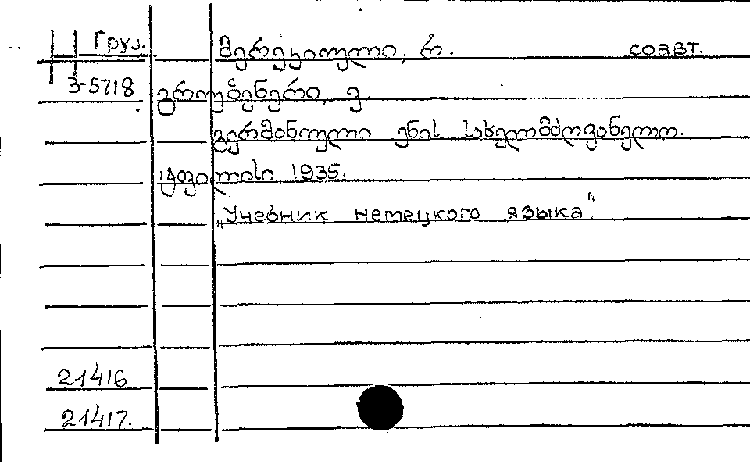 Груз. მერკვილული, რ. соавт.
3-5718 გრიუბენერი, ე
გერმანული ენის სახელმძღვანელო.
ტფილისი 1935.
„Учебник немецкого языка".
21416
21417.